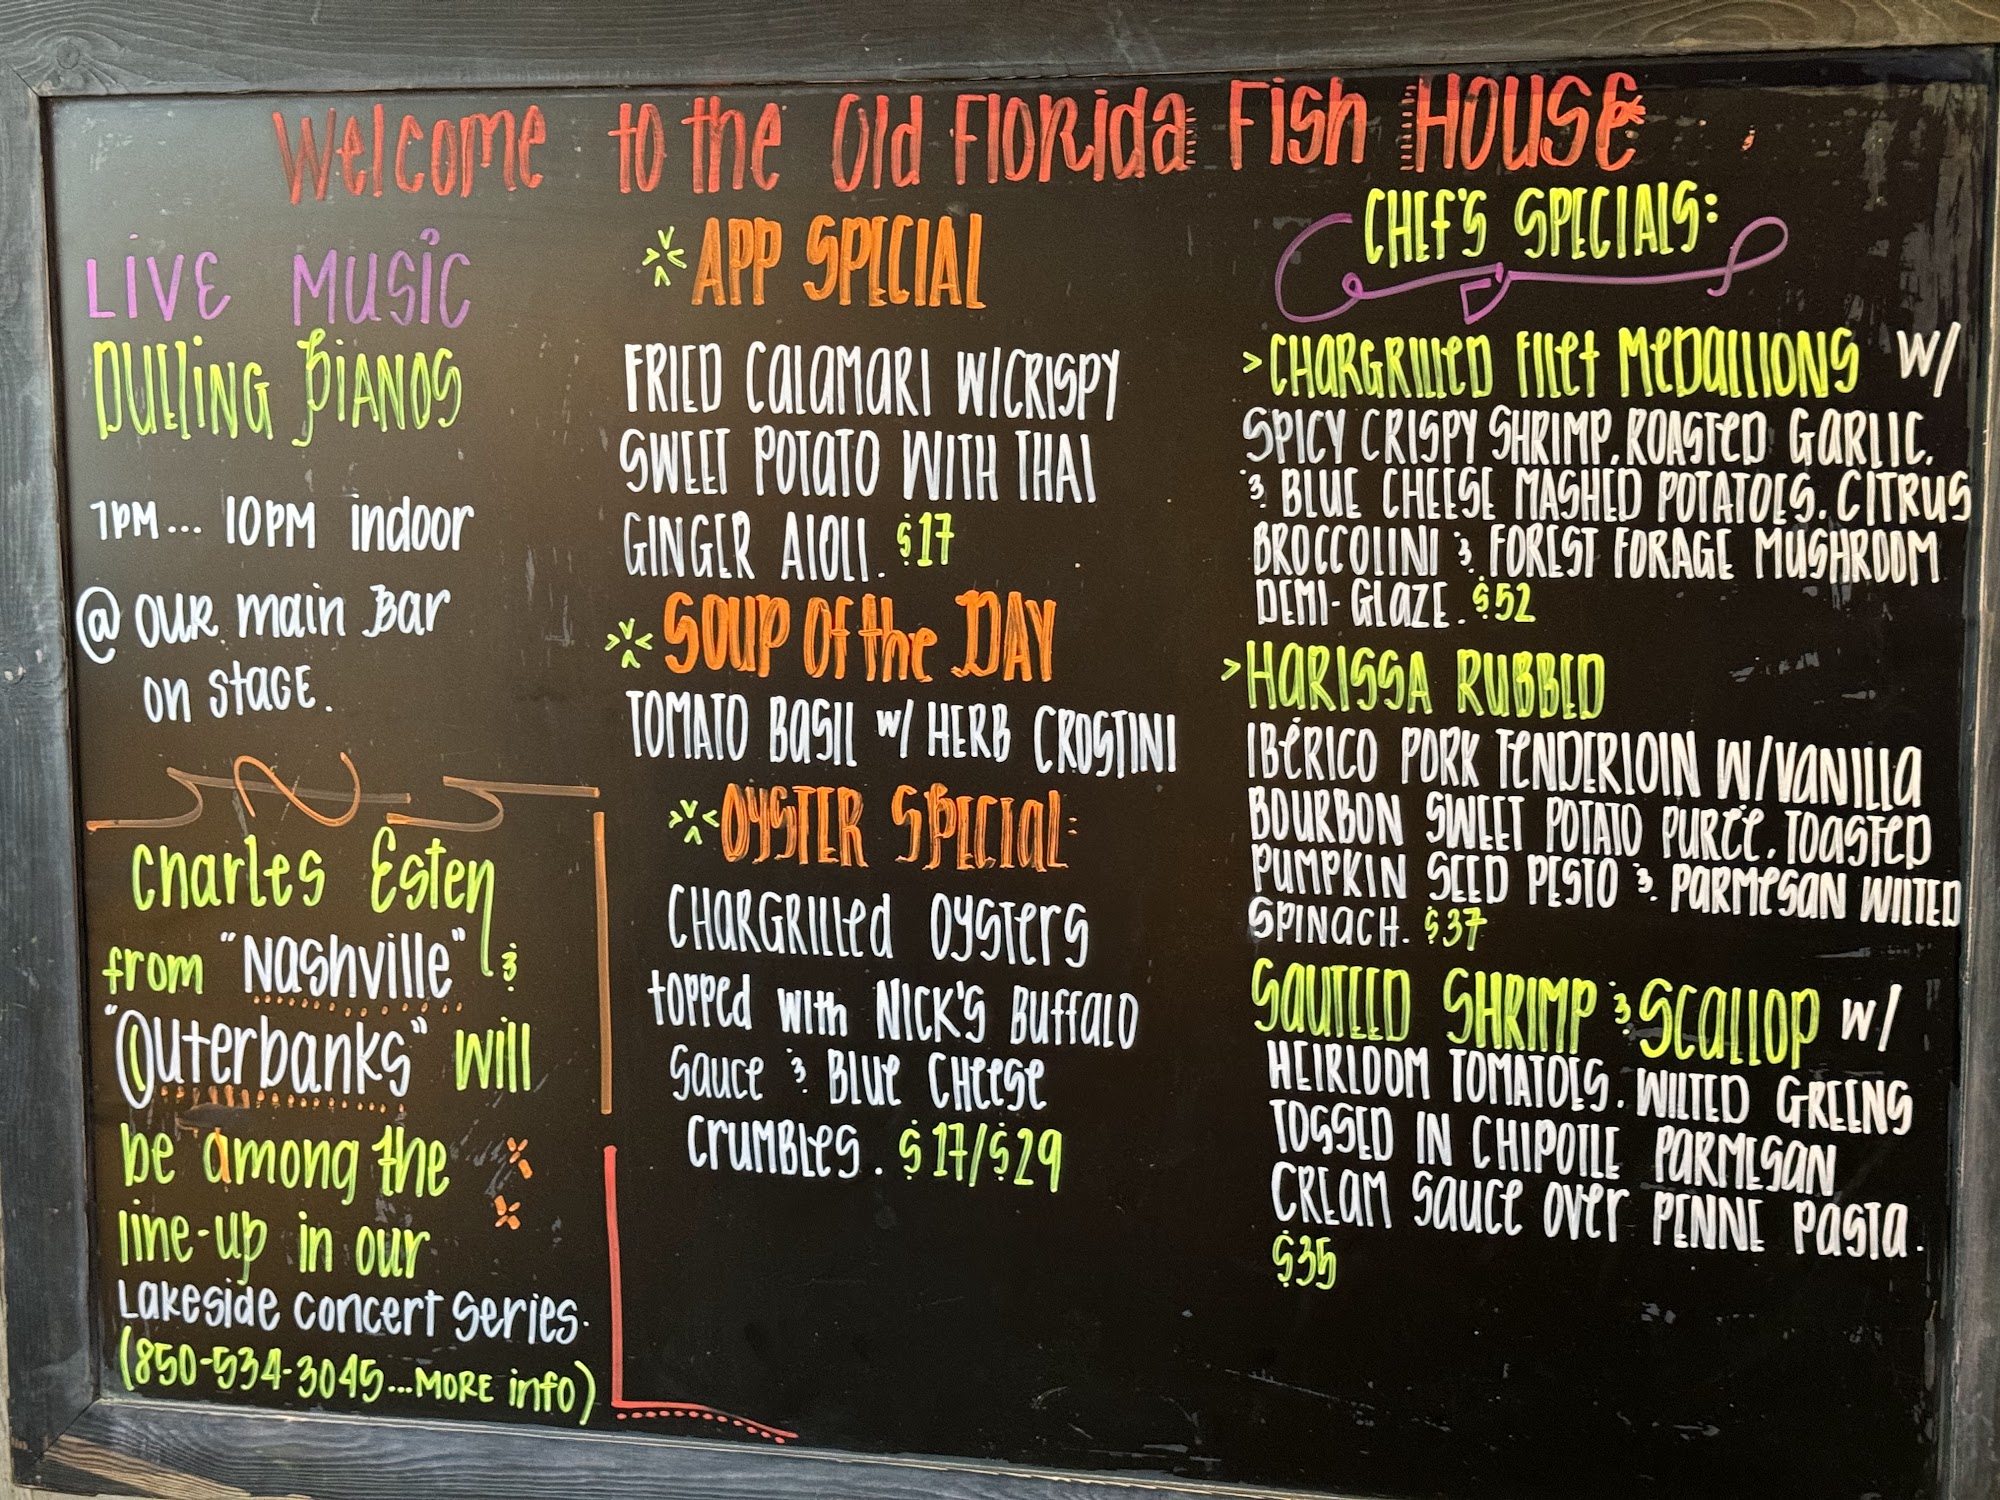 Welcome to the Old Florida Fish House
LIVE MUSIC
DUELING PIANOS
7PM... 10PM indoor
@ our main Bar
on stage.
Charles Esten
from "Nashville" &
"Outerbanks" will
be among the
line-up in our
Lakeside Concert Series.
(850-534-3045...MORE info)
APP SPECIAL
FRIED CALAMARI W/CRISPY
SWEET POTATO WITH THAI
GINGER AIOLI. $17
SOUP OF the DAY
TOMATO BASIL w/ HERB CROSTINI
OYSTER SPECIAL:
CHARGRILLED OYSTERS
topped with NICK'S BUFFALO
Sauce & BLUE CHEESE
CRUMBLES. $17/$29
CHEF'S SPECIALS:
>CHARGRILLED FILET MEDALLIONS W/
SPICY CRISPY SHRIMP, ROASTED GARLIC,
& BLUE CHEESE MASHED POTATOES, CITRUS
BROCCOLINI & FOREST FORAGE MUSHROOM
DEMI-GLAZE. $52
>HARISSA RUBBED
IBÉRICO PORK TENDERLOIN W/VANILLA
BOURBON SWEET POTATO PURÉE, TOASTED
PUMPKIN SEED PESTO & PARMESAN WILTED
SPINACH. $37
SAUTEED SHRIMP & SCALLOP W/
HEIRLOOM TOMATOES, WILTED GREENS
TOSSED IN CHIPOTLE PARMESAN
CREAM SAUCE OVER PENNE PASTA.
$35